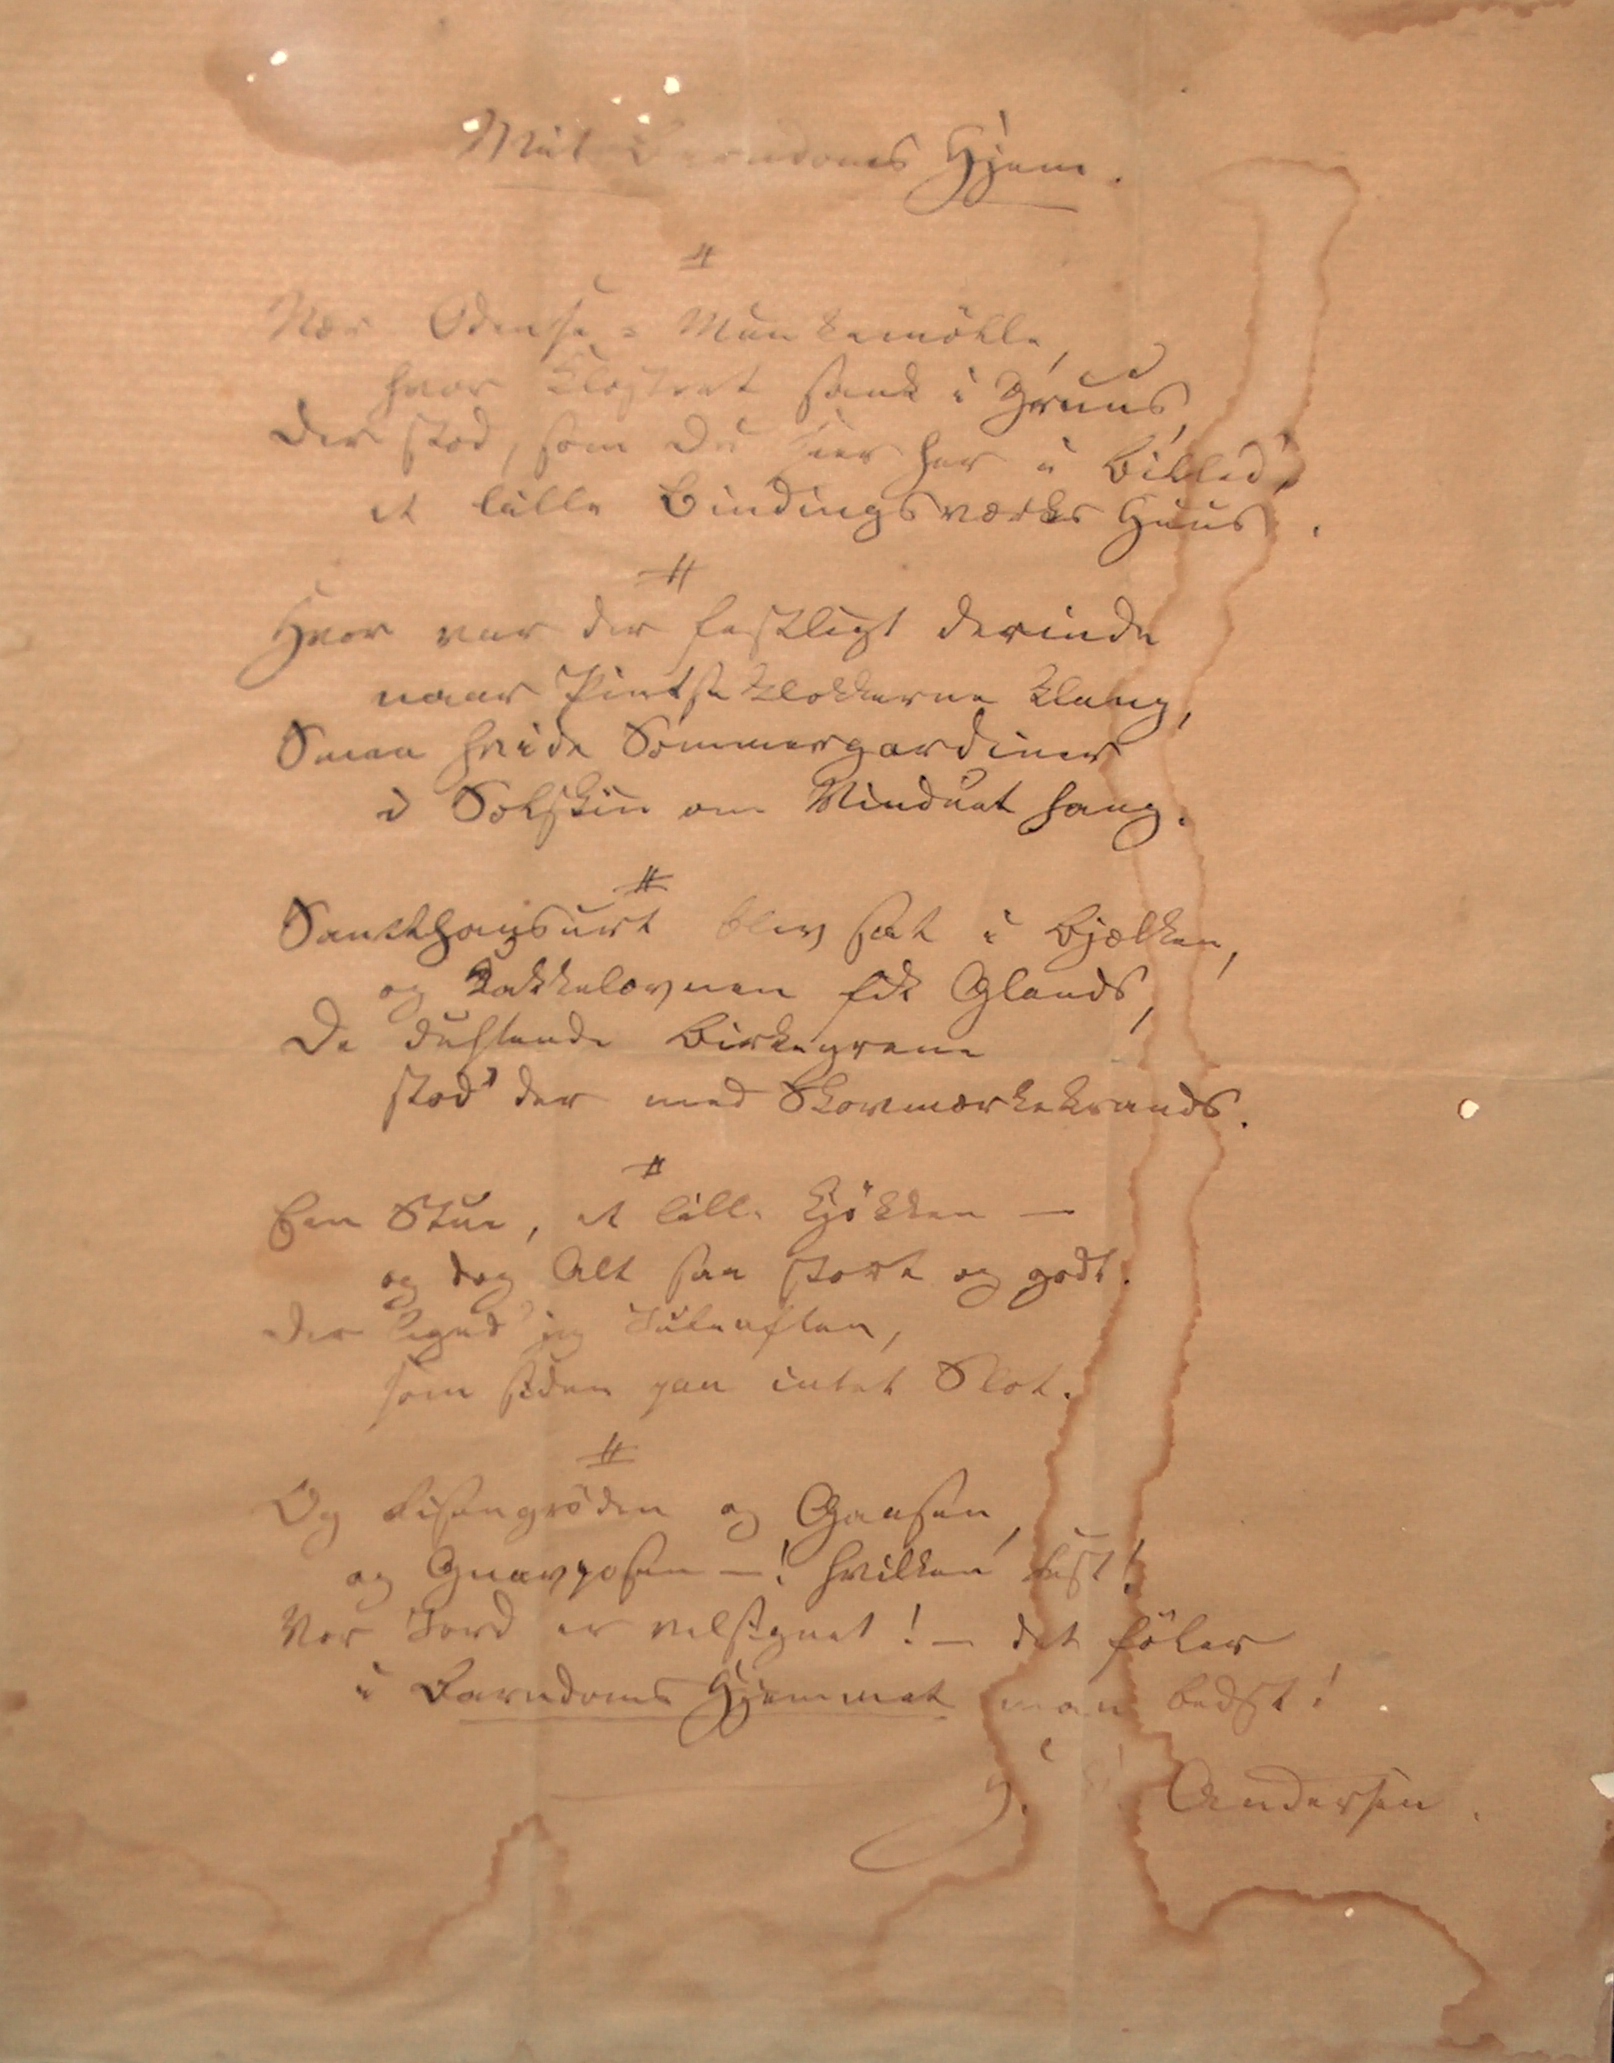 Mit Barndoms Hjem.
Nær Odense = Munkemölle,
hvor Klostret sank i Gruus,
Der stod, som Du seer her i Billed',
et lille Bindingsværks Huus.
Hvor var der festligt derinde
naar Pintseklokkerne klang,
Smaa hvide Sommergardiner
i Solskin om Vinduet hang.
Sankthansurt blev sat i Bjælken,
og Kakkelovnen fik Glands,
De duftende Birkegrene
stod' der med Skovmærkekrands.
Een Stue, et lille Kjökken —
og dog Alt saa stort og godt.
Der leged' jeg Juleaften,
som siden paa intet Slot.
Og Risengröden og Gaasen,
og Gnavposen —! hvilken Fest!
Vor Jord er velsignet! — det föler
i Barndoms Hjemmet man bedst!
Andersen.